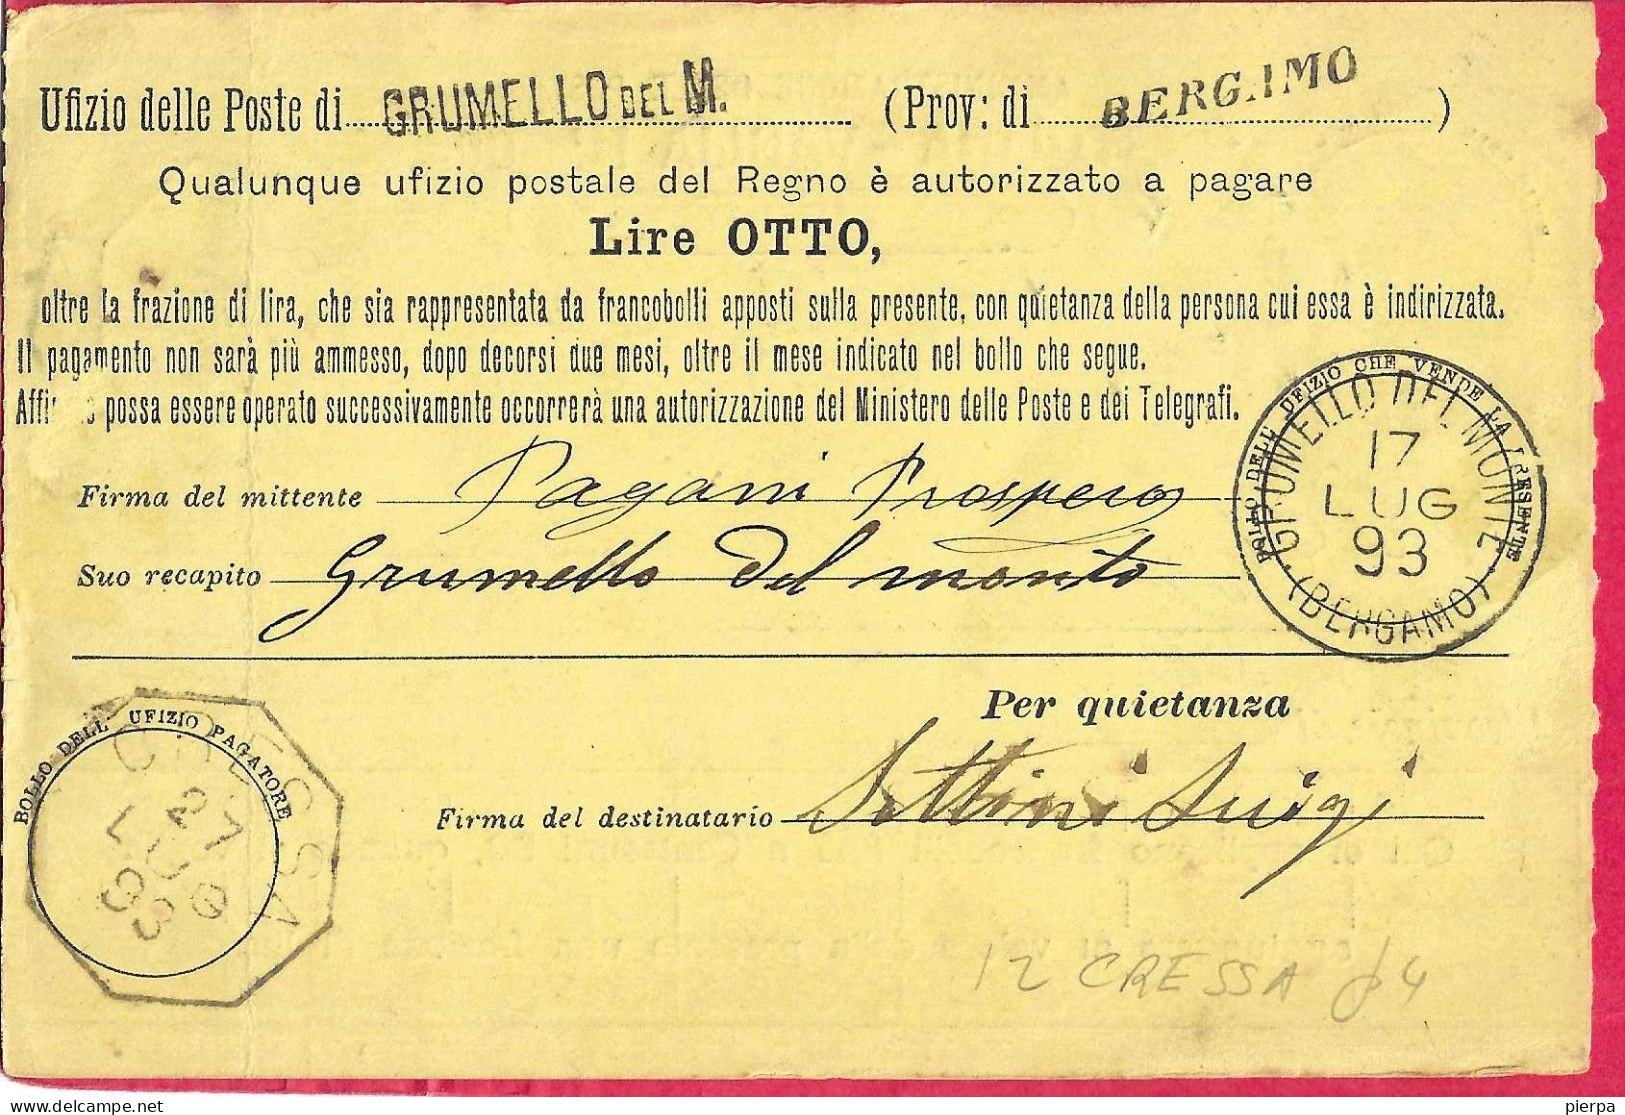 Ufizio delle Poste di GRUMELLO DEL M. (Prov: di BERGAMO)
Qualunque ufizio postale del Regno è autorizzato a pagare
Lire OTTO,
oltre la frazione di lira, che sia rappresentata da francobolli apposti sulla presente, con quietanza della persona cui essa è indirizzata.
Il pagamento non sarà più ammesso, dopo decorsi due mesi, oltre il mese indicato nel bollo che segue.
possa essere operato successivamente occorrerà una autorizzazione del Ministero delle Poste e dei Telegrafi.
BOLLO DELL' UFIZIO CHE VENDE LA PRESENTE
GRUMELLO DEL MONTE
17
LUG
93
(BERGAMO)
Firma del mittente Pagani Prospero
Suo recapito Grumello del monte
Per quietanza
BOLLO DELL' UFIZIO PAGATORE
CRESSA
27
LUG
93
Firma del destinatario Settini Luigi
12 CRESSA
pierpa